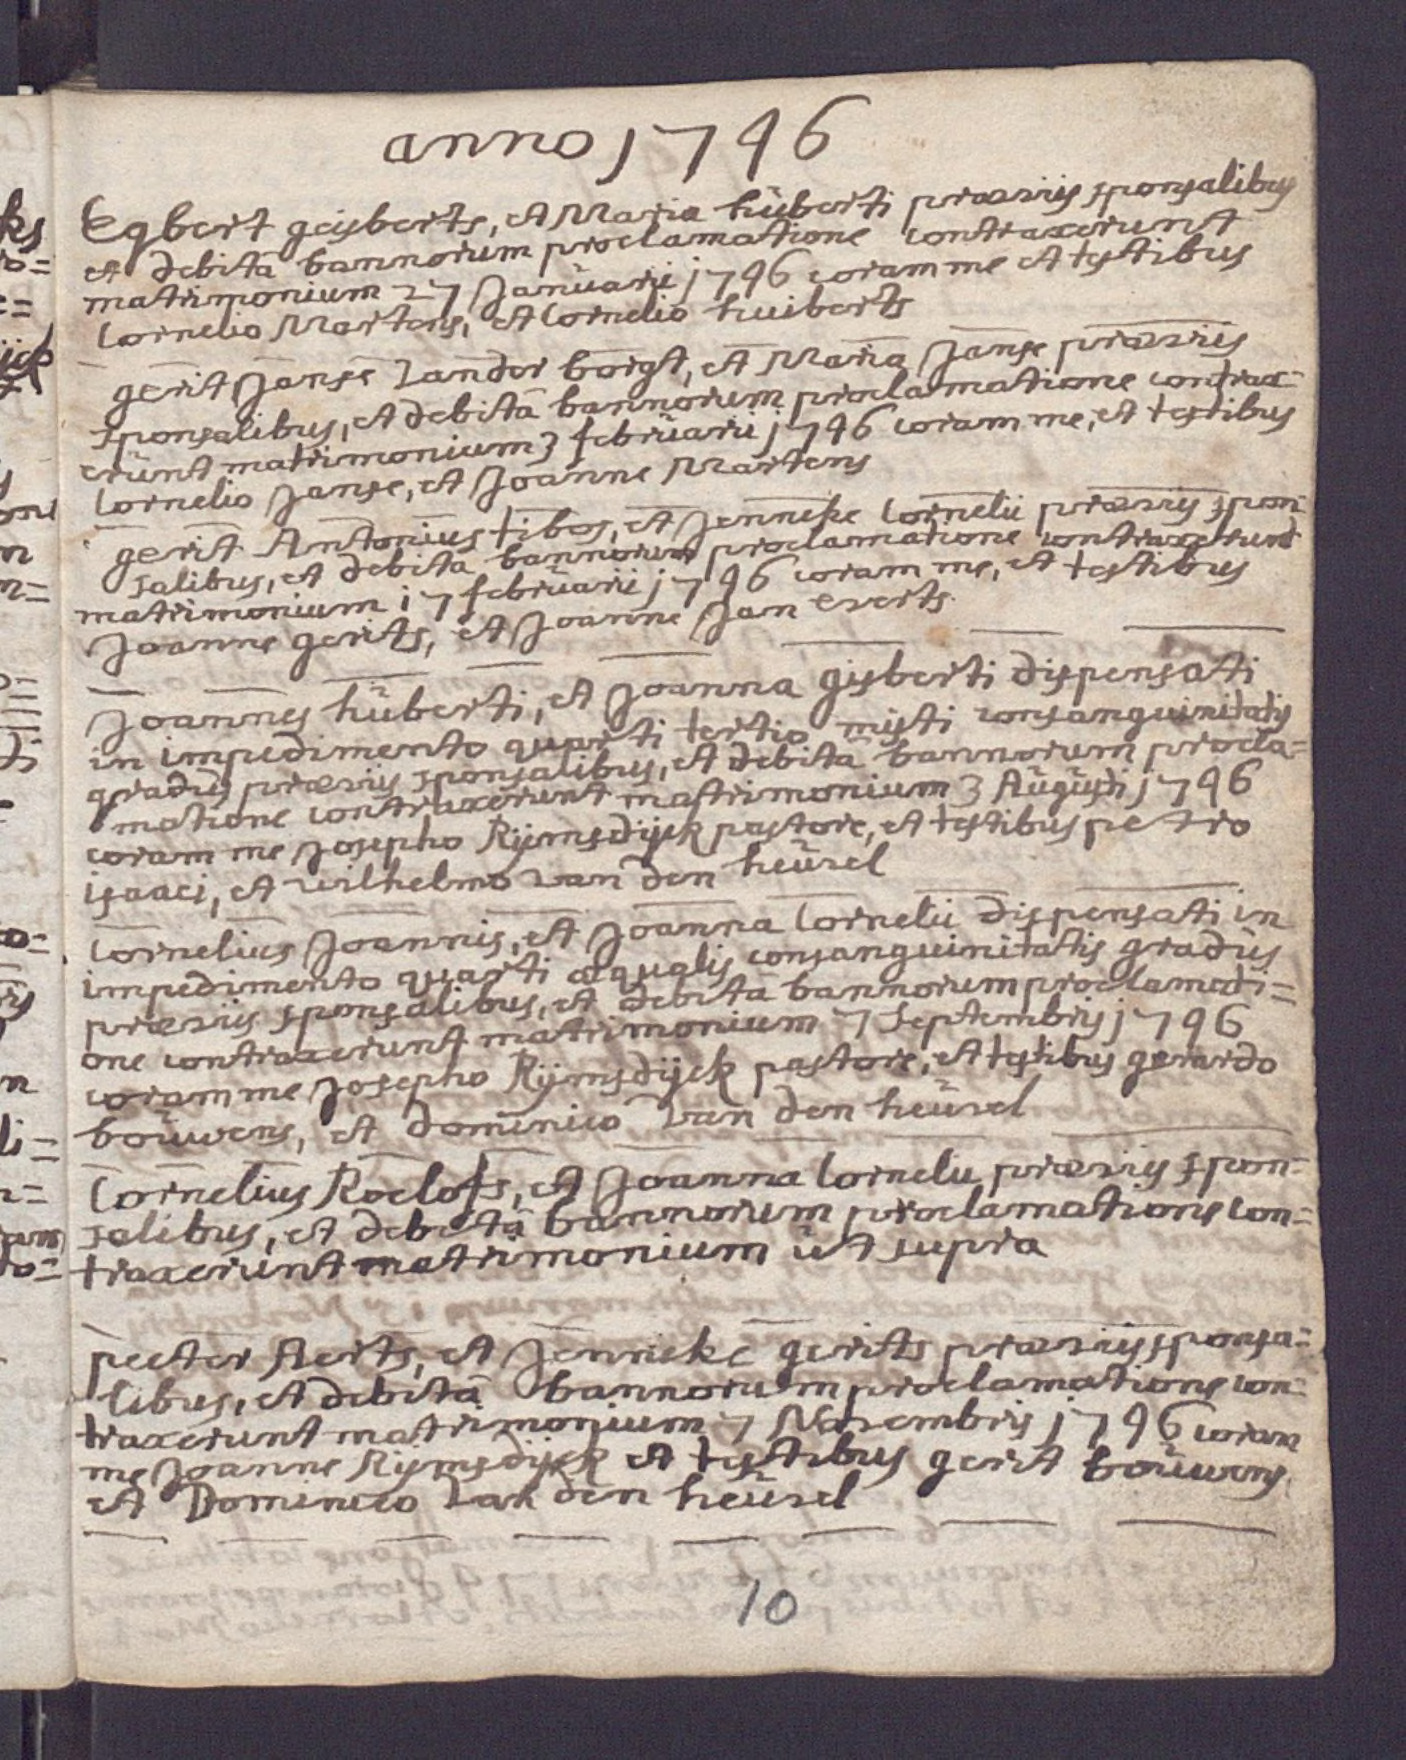 anno 1746
Egbert geysberts, et Maria hüberti præviis sponsalibus
et debitâ bannorum proclamatione contraxerunt
matrimonium 27 Januarii 1746 coram me et testibus
Cornelio Martens, et Cornelio huiberts
gerit Janse Vander borgt, et Maria Janse præviis
sponsalibus, et debitâ bannorum proclamatione contrax=
erunt matrimonium 3 februarii 1746 coram me, et testibus
Cornelio Janse, et Joanne Martens
gerit Antonius tibos, et Jenneke Cornelii præviis spon
salibus, et debita bannorum proclamatione contraxerunt
matrimonium 17 februarii 1746 coram me, et testibus
Joanne gerits, et Joanne Jan Everts
Joannes hüberti, et Joanna gisberti dispensati
in impedimento quarti tertio misti consanguinitatis
gradus præviis sponsalibus, et debitâ bannorum procla=
matione contraxerunt matrimonium 3 Augusti 1746
coram me Josepho Rijmsdijck pastore, et testibus petro
isaaci, et wilhelmo van den heüvel
Cornelius Joannis, et Joanna Cornelii dispensati in
impedimento quarti æqualis consanguinitatis gradus
præviis sponsalibus, et debitâ bannorum proclamati=
one contraxerunt matrimonium 7 Septembris 1746
coram me Josepho Rijmsdijck pastore, et testibus gerardo
boüwens, et dominico van den heüvel
Cornelius Roelofs, et Joanna Cornelii præviis spon=
salibus, et debitâ bannorum proclamatione con=
traxerunt matrimonium üt supra
peeter Aerts, et Jenneke gerits præviis sponsa=
libus, et debitâ bannorum proclamatione con=
traxerunt matrimonium 7 Novembris 1746 coram
me Joanne Rijmsdijck et testibus gerit boüwens
et Dominico Van den heüvel
10